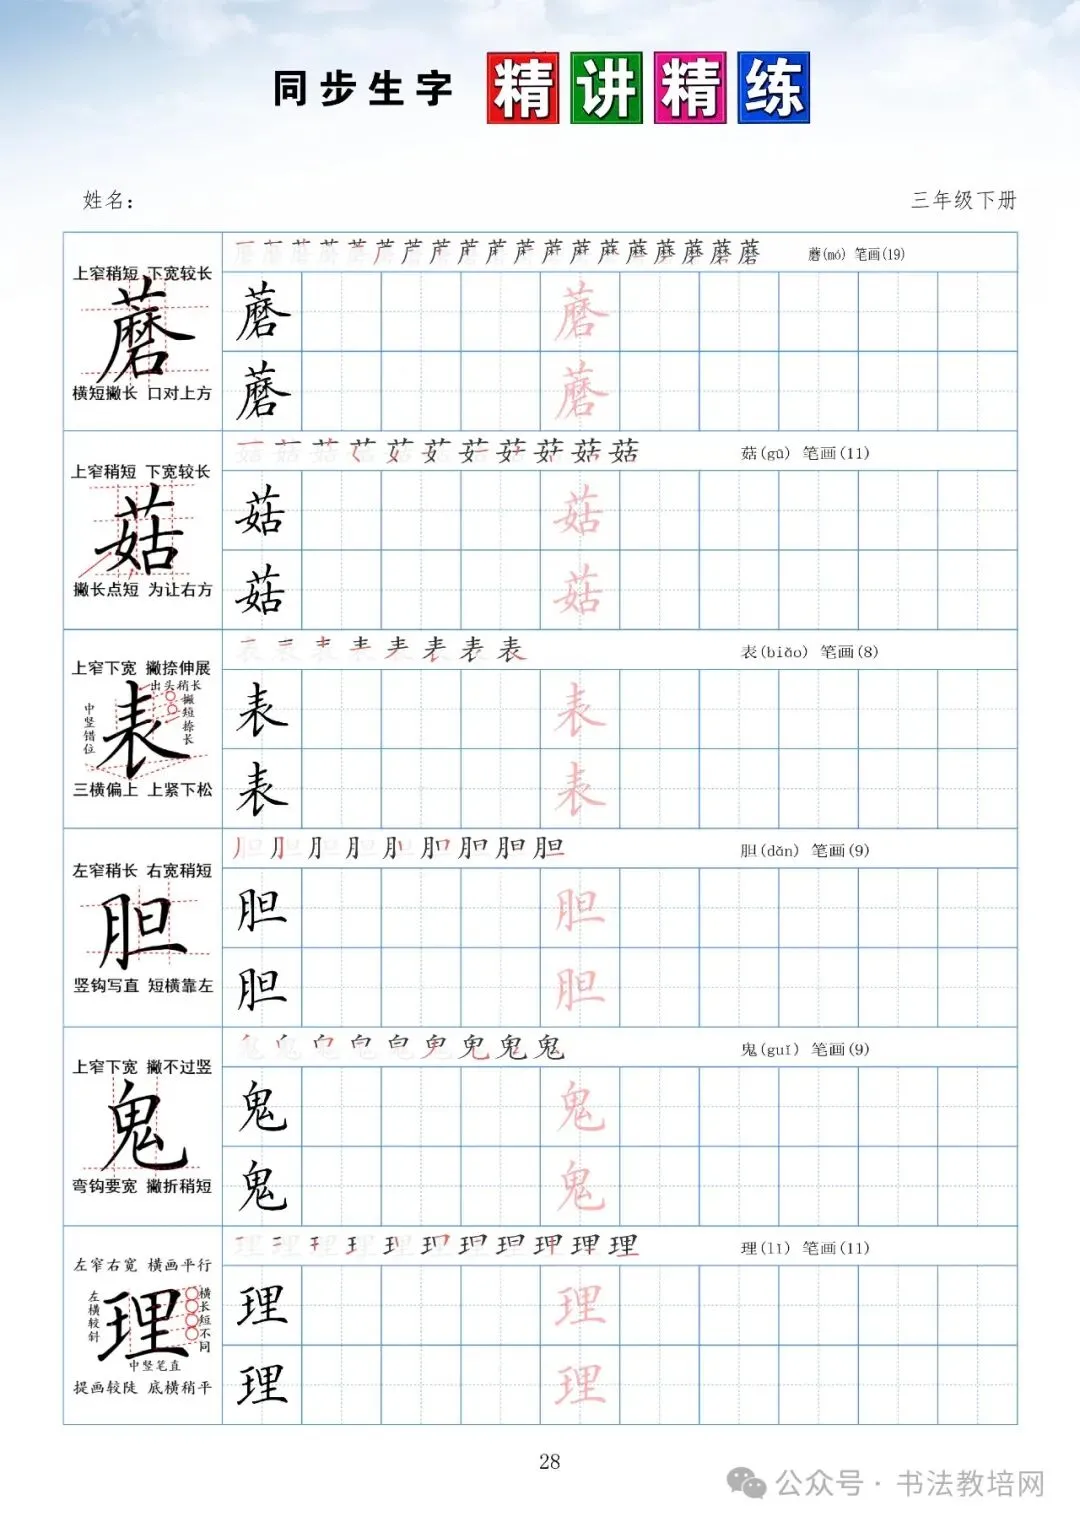 同步生字 精讲精练
姓名：
三年级下册
上窄稍短 下宽较长
蘑
横短撇长 口对上方
蘑(mó) 笔画(19)
蘑 蘑
蘑 蘑
上窄稍短 下宽较长
菇
撇长点短 为让右方
菇(gū) 笔画(11)
菇 菇
菇 菇
上窄下宽 撇捺伸展
出头稍长
中竖错位
表
撇短捺长
三横偏上 上紧下松
表(biǎo) 笔画(8)
表 表
表 表
左窄稍长 右宽稍短
胆
竖钩写直 短横靠左
胆(dǎn) 笔画(9)
胆 胆
胆 胆
上窄下宽 撇不过竖
鬼
弯钩要宽 撇折稍短
鬼(guǐ) 笔画(9)
鬼 鬼
鬼 鬼
左窄右宽 横画平行
左横较斜
理
横长短不同
中竖笔直
提画较陡 底横稍平
理(lǐ) 笔画(11)
理 理
理 理
28
公众号·书法教培网